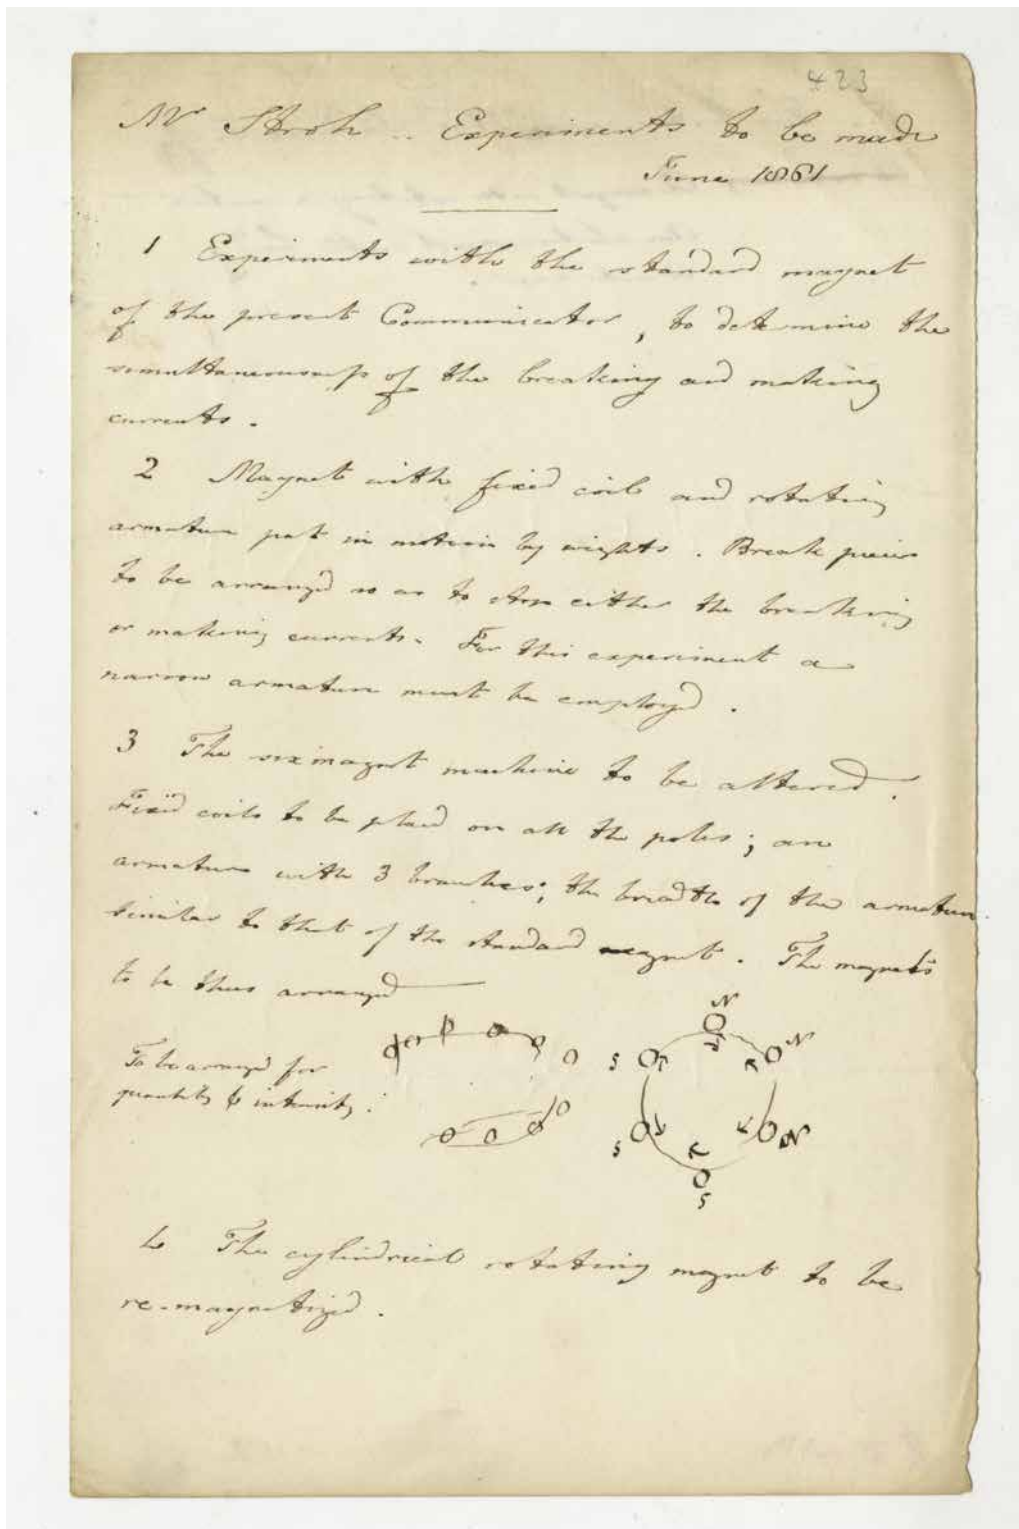 423
Mr Stroh.. Experiments to be made
June 1861
1 Experiments with the standard magnet
of the present Communicator, to determine the
simultaneousness of the breaking and making
currents.
2 Magnet with fixed coils and rotating
armature put in motion by weights. Break piece
to be arranged so as to stop either the breaking
or making currents. For this experiment a
narrow armature must be employed.
3 The six magnet machine to be altered.
Fixed coils to be placed on all the poles; an
armature with 3 branches; the breadth of the armature
similar to that of the standard magnet. The magnets
to be thus arranged
N
N
S
To be arranged for
quantity & intensity.
S
N
S
4 The cylindrical rotating magnet to be
re-magnetized.